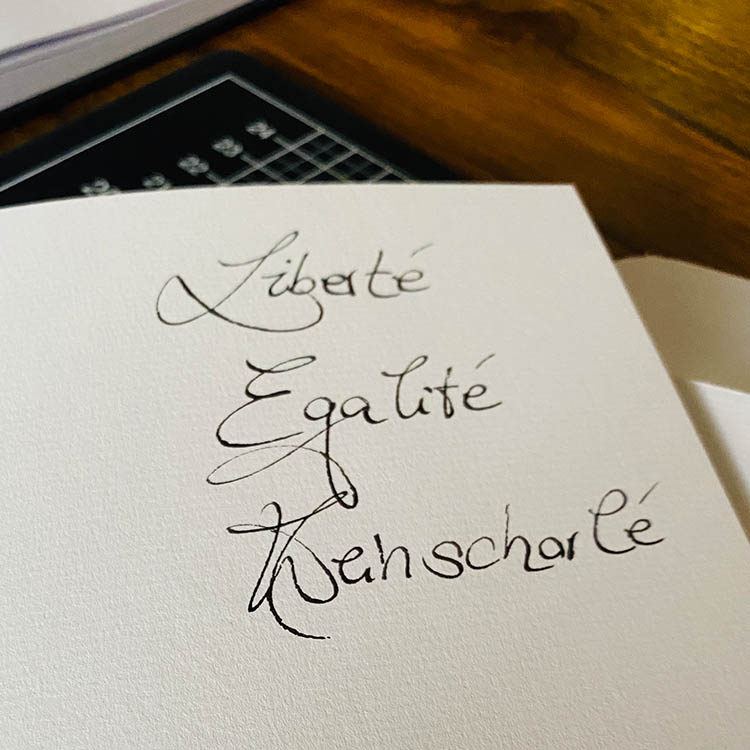 Liberté
Egalité
Weinschorlé